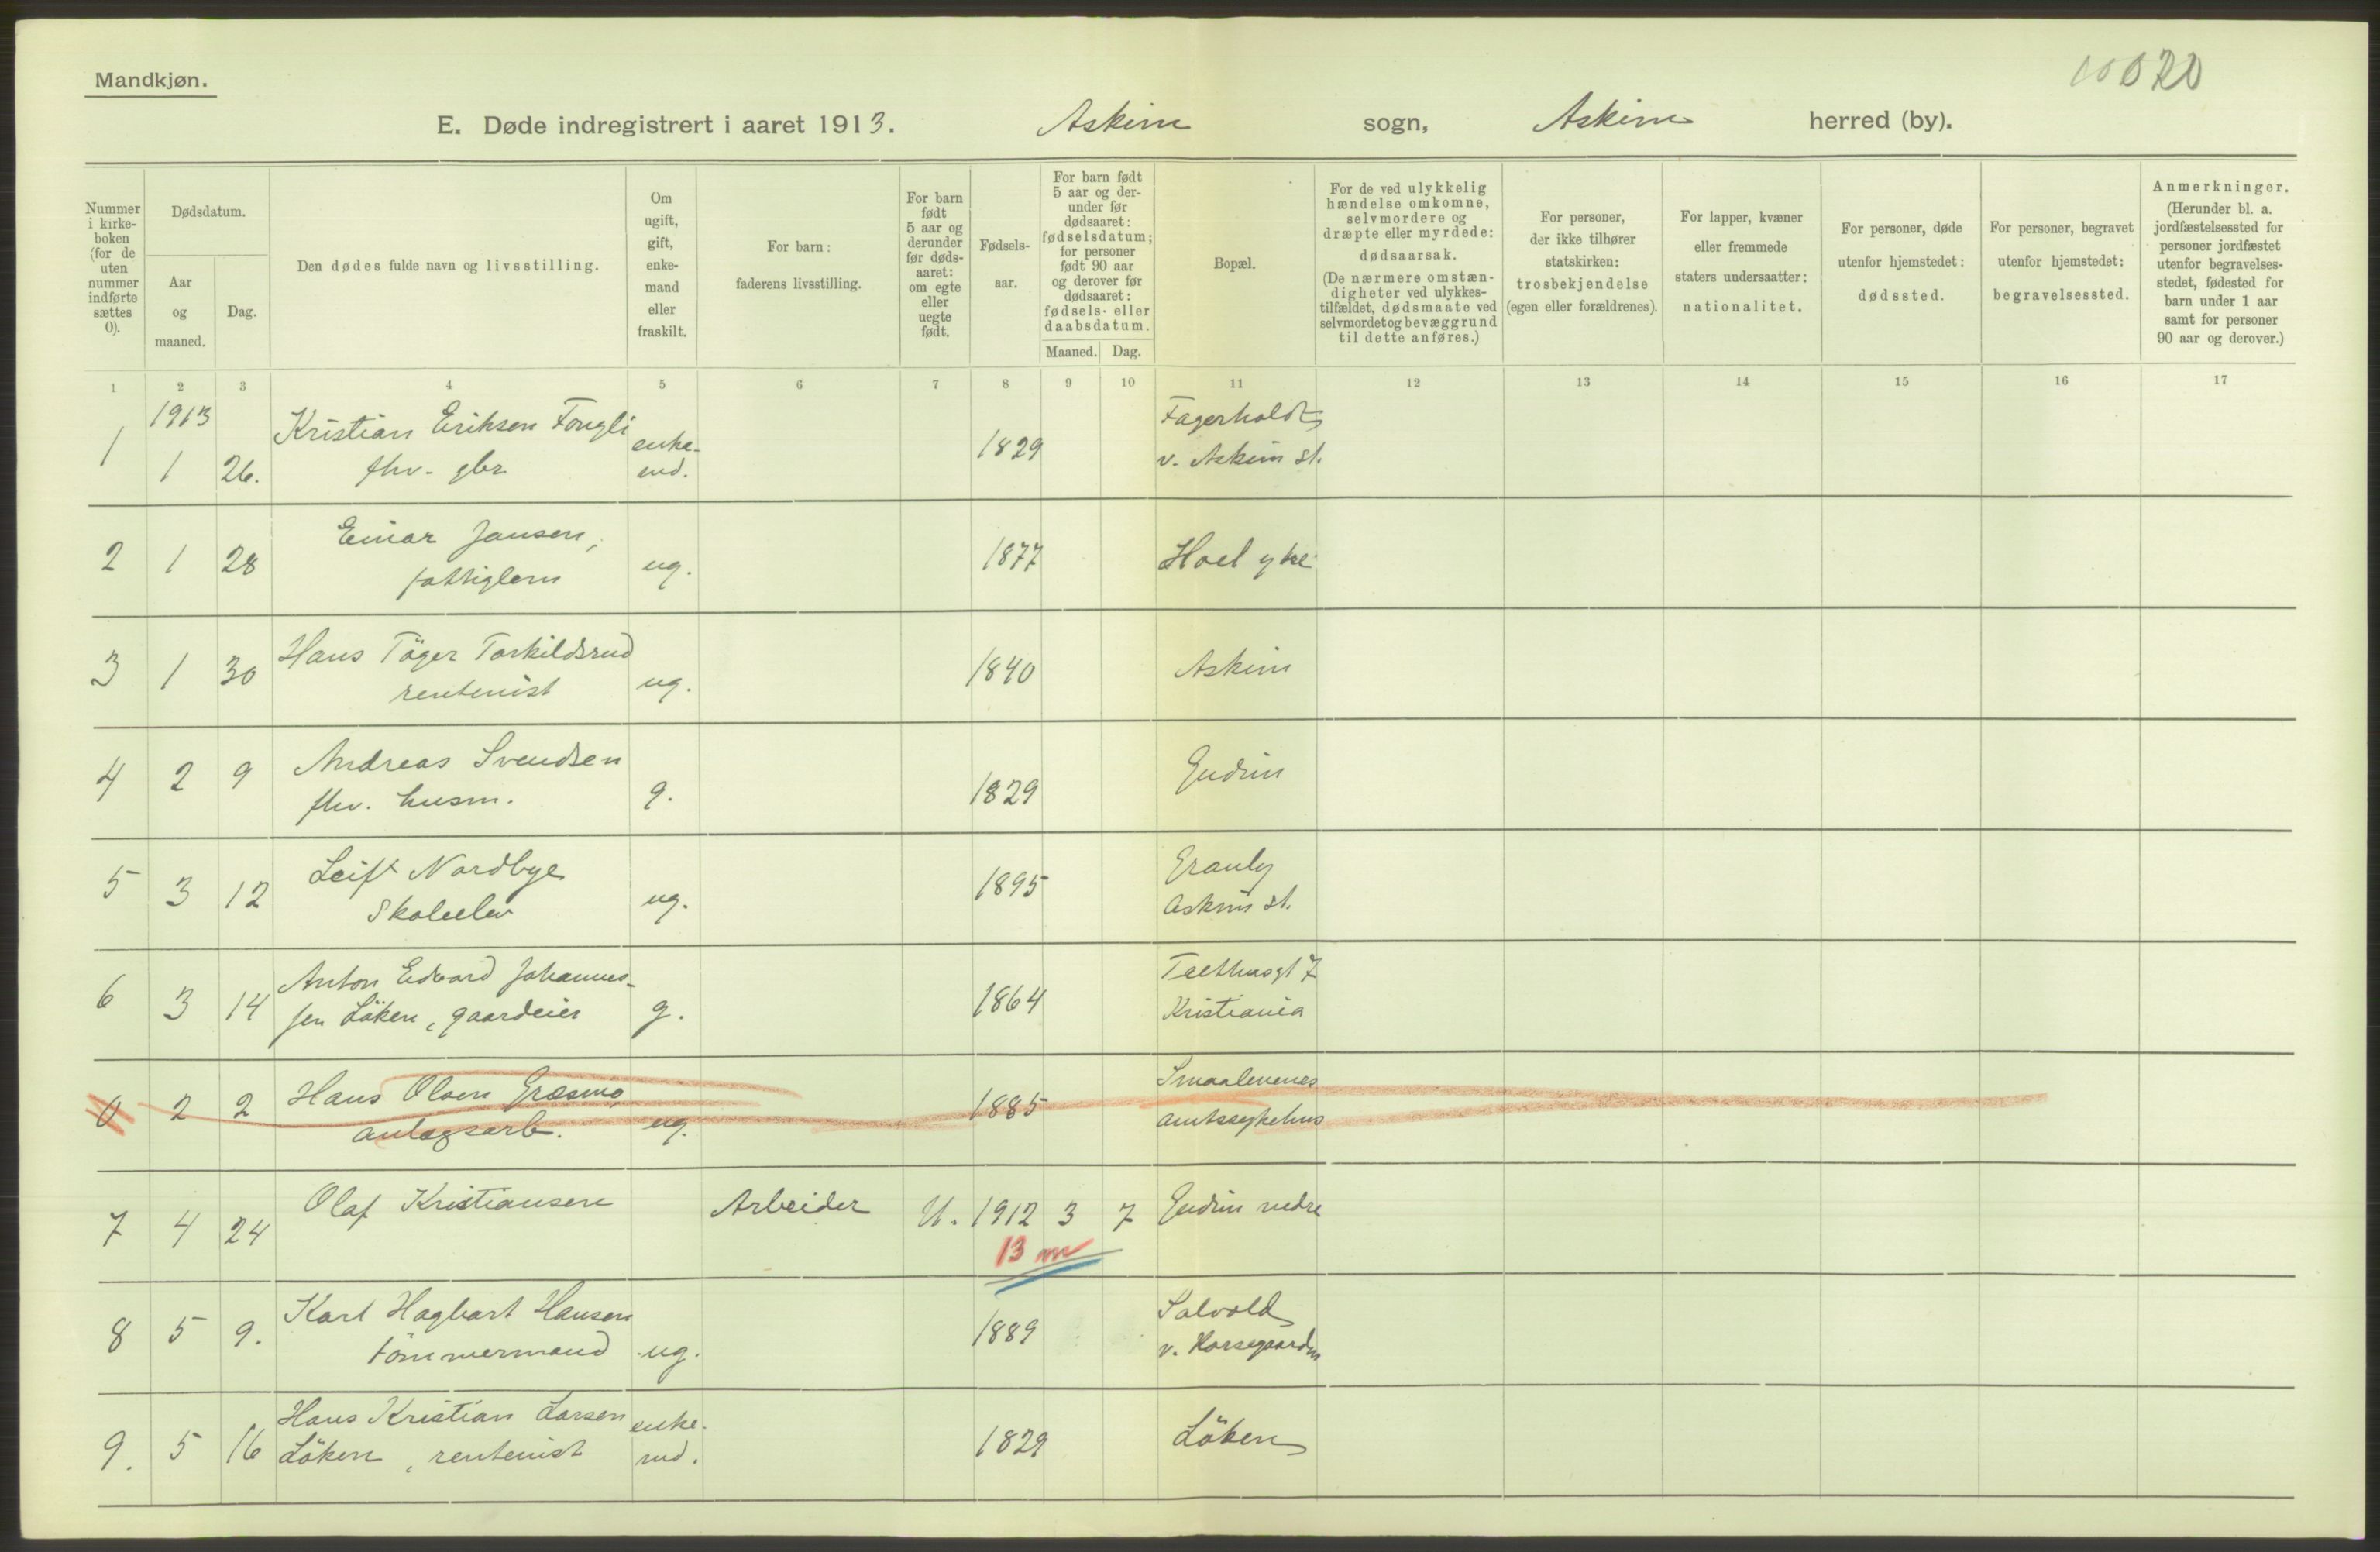 Mandkjøn.
10020
E. Døde indregistrert i aaret 1913. Askim sogn, Askim herred (by).
Nummer i kirkeboken (for de uten nummer indførte sættes 0).
Dødsdatum.
Aar og maaned.
Dag.
Den dødes fulde navn og livsstilling.
Om ugift, gift, enkemand eller fraskilt.
For barn: faderens livsstilling.
For barn født 5 aar og derunder før dødsaaret: om egte eller uegte født.
Fødselsaar.
For barn født 5 aar og derunder før dødsaaret: fødselsdatum; for personer født 90 aar og derover før dødsaaret: fødsels- eller daabsdatum.
Maaned. Dag.
Bopæl.
For de ved ulykkelig hændelse omkomne, selvmordere og dræpte eller myrdede: dødsaarsak.
(De nærmere omstændigheter ved ulykkestilfældet, dødsmaate ved selvmordet og bevæggrund til dette anføres.)
For personer, der ikke tilhører statskirken: trosbekjendelse (egen eller forældrenes).
For lapper, kvæner eller fremmede staters undersaatter: nationalitet.
For personer, døde utenfor hjemstedet: dødssted.
For personer, begravet utenfor hjemstedet: begravelsessted.
Anmerkninger.
(Herunder bl. a. jordfæstelsessted for personer jordfæstet utenfor begravelsesstedet, fødested for barn under 1 aar samt for personer 90 aar og derover.)
1 2 3 4 5 6 7 8 9 10 11 12 13 14 15 16 17
1913
1 1 26. Kristian Eriksen Fongli enke- 1829 Fagerholdt
fhv. gbr md. v. Askim st.
2 1 28 Einar Jansen, ug. 1877 Hoel
fattiglem
3 1 30 Hans Töger Torkildsrud ug. 1840 Askim
rentenist
4 2 9 Andreas Svendsen g. 1829 Gudim
fhv. husm.
5 3 12 Leif Nordbye ug. 1895 Granly
Skoleelev Askim st.
6 3 14 Anton Edvard Johannes- g. 1864 Tufthusgt 7
sen Löken, gaardeier Kristiania
0 2 2 Hans Olsen Græsmo, ug. 1885 Smaalenenes
anlægsarb. amtssykehus
7 4 24 Olaf Kristiansen Arbeider U. 1912 3 7 Gudim nedre
13 m
8 5 9. Karl Hagbart Hansen ug. 1889 Solvold
tömmermand v. Korsegaarden
9. 5 16 Hans Kristian Larsen enke- 1829 Löken
Löken, rentenist md.